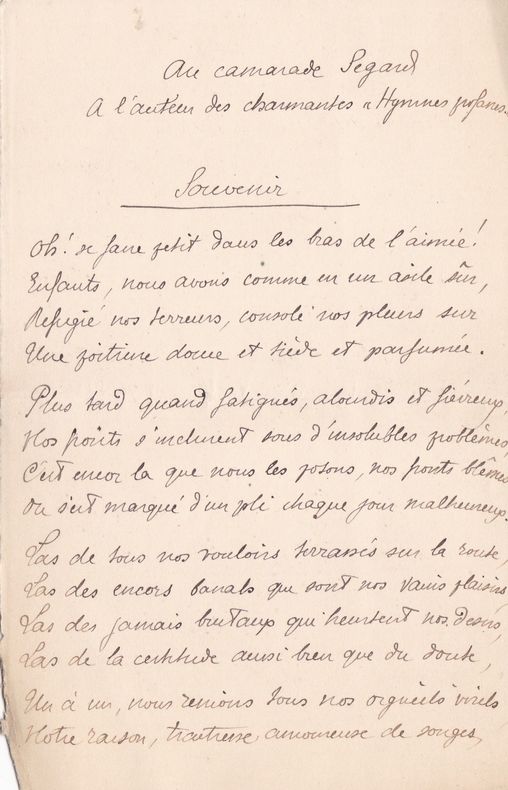 Au camarade Segard
A l'auteur des charmantes « Hymnes profanes »
Souvenir
Oh! se faire petit dans les bras de l'aimée!
Enfants, nous avons comme en un asile sûr,
Refugié nos terreurs, consolé nos pleurs sur
Une poitrine douce et tiède et parfumée.
Plus tard quand fatigués, alourdis et fiévreux,
Nos fronts s'inclinent sous d'insolubles problèmes
C'est encor la que nous les posons, nos fronts blêmes
Ou s'est marqué d'un pli chaque jour malheureux.
Las de tous nos vouloirs terrassés sur la route,
Las des encors banals que sont nos vains plaisirs
Las des jamais brutaux qui heurtent nos desirs,
Las de la certitude aussi bien que du doute,
Un à un, nous renions tous nos orgueils virils
Notre raison, traitresse amoureuse de songes,